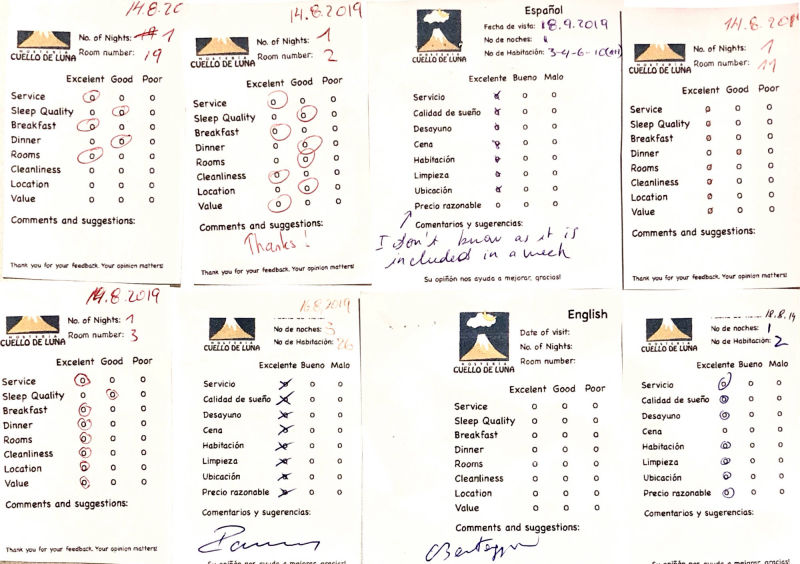 14.8.20
HOSTERÍA
CUELLO DE LUNA
No. of Nights: 1
Room number: 19
Excelent Good Poor
Service
Sleep Quality
Breakfast
Dinner
Rooms
Cleanliness
Location
Value
Comments and suggestions:
Thank you for your feedback. Your opinion matters!
14.8.2019
HOSTERÍA
CUELLO DE LUNA
No. of Nights: 1
Room number: 2
Excelent Good Poor
Service
Sleep Quality
Breakfast
Dinner
Rooms
Cleanliness
Location
Value
Comments and suggestions:
Thanks!
Thank you for your feedback. Your opinion matters!
Español
HOSTERÍA
CUELLO DE LUNA
Fecha de vista: 18.9.2019
No de noches: 1
No de Habitación: 3-4-6-10
Excelente Bueno Malo
Servicio
Calidad de sueño
Desayuno
Cena
Habitación
Limpieza
Ubicación
Precio razonable
Comentarios y sugerencias:
I don't know as it is
included in a week
Su opiñón nos ayuda a mejorar, gracias!
14.8.2019
HOSTERÍA
CUELLO DE LUNA
No. of Nights: 1
Room number: 11
Excelent Good Poor
Service
Sleep Quality
Breakfast
Dinner
Rooms
Cleanliness
Location
Value
Comments and suggestions:
Thank you for your feedback. Your opinion matters!
14.8.2019
HOSTERÍA
CUELLO DE LUNA
No. of Nights: 1
Room number: 3
Excelent Good Poor
Service
Sleep Quality
Breakfast
Dinner
Rooms
Cleanliness
Location
Value
Comments and suggestions:
Thank you for your feedback. Your opinion matters!
16.8.2019
HOSTERÍA
CUELLO DE LUNA
No de noches:
No de Habitación:
Excelente Bueno Malo
Servicio
Calidad de sueño
Desayuno
Cena
Habitación
Limpieza
Ubicación
Precio razonable
Comentarios y sugerencias:
Su opiñón nos ayuda a mejorar, gracias!
English
HOSTERÍA
CUELLO DE LUNA
Date of visit:
No. of Nights:
Room number:
Excelent Good Poor
Service
Sleep Quality
Breakfast
Dinner
Rooms
Cleanliness
Location
Value
Comments and suggestions:
18.8.19
HOSTERÍA
CUELLO DE LUNA
No de noches: 1
No de Habitación: 2
Excelente Bueno Malo
Servicio
Calidad de sueño
Desayuno
Cena
Habitación
Limpieza
Ubicación
Precio razonable
Comentarios y sugerencias:
Su opiñón nos ayuda a mejorar, gracias!